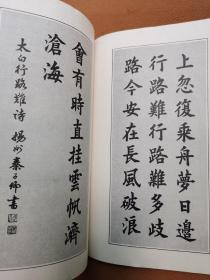 上忽復乘舟夢日邊
行路難行路難多歧
路今安在長風破浪
會有時直挂雲帆濟
滄海
太白行路難詩
揚州秦子卿書